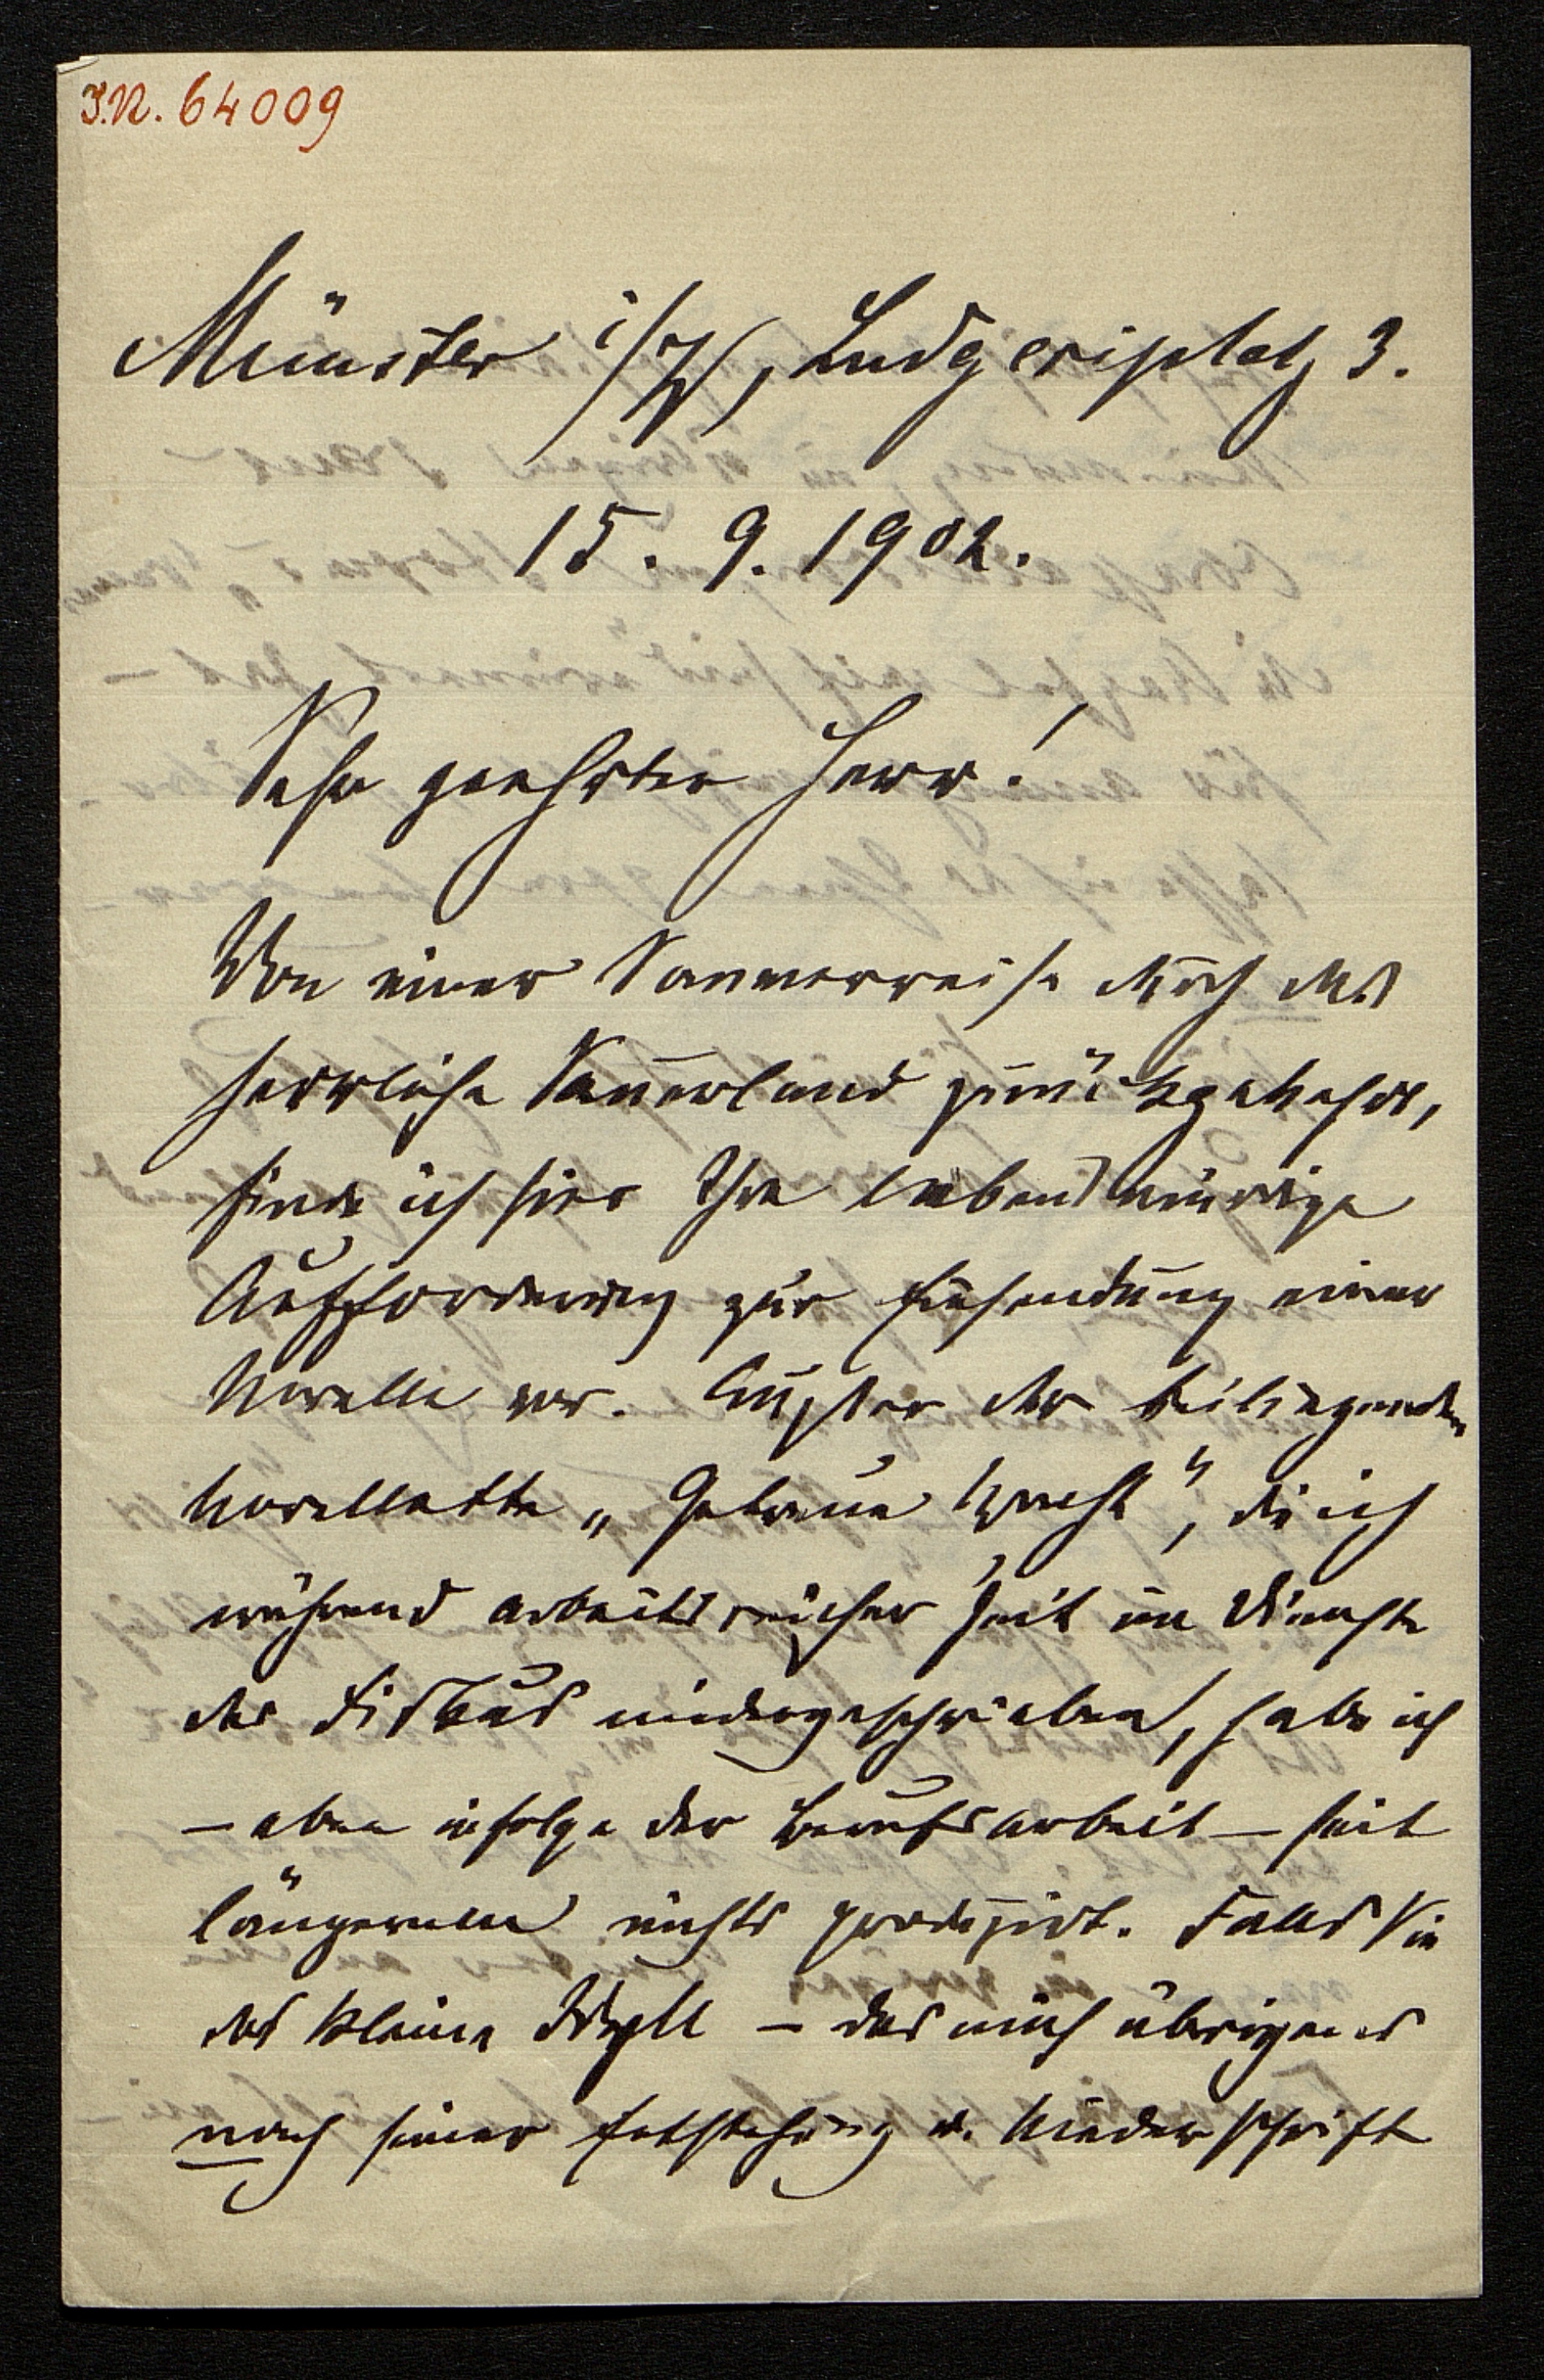 I.N. 64009
Münster i/W, Ludgeriplatz 3.
15. 9. 1902.
Sehr geehrter Herr!
Von einer Sommerreise durch das
herrliche Sauerland zurückgekehrt,
finde ich hier Ihre liebenswürdige
Aufforderung zur Einsendung einer
Novelle vor. Außer der beiliegenden
Novellette „Getreue Knecht", die ich
während arbeitsreicher Zeit im Dienste
des Fiskus niedergeschrieben, habe ich
– eben infolge der Berufsarbeit – seit
längerem nichts produzirt. Falls Sie
das kleine Idyll – das mich übrigens
nach seiner Entstehung u. Niederschrift